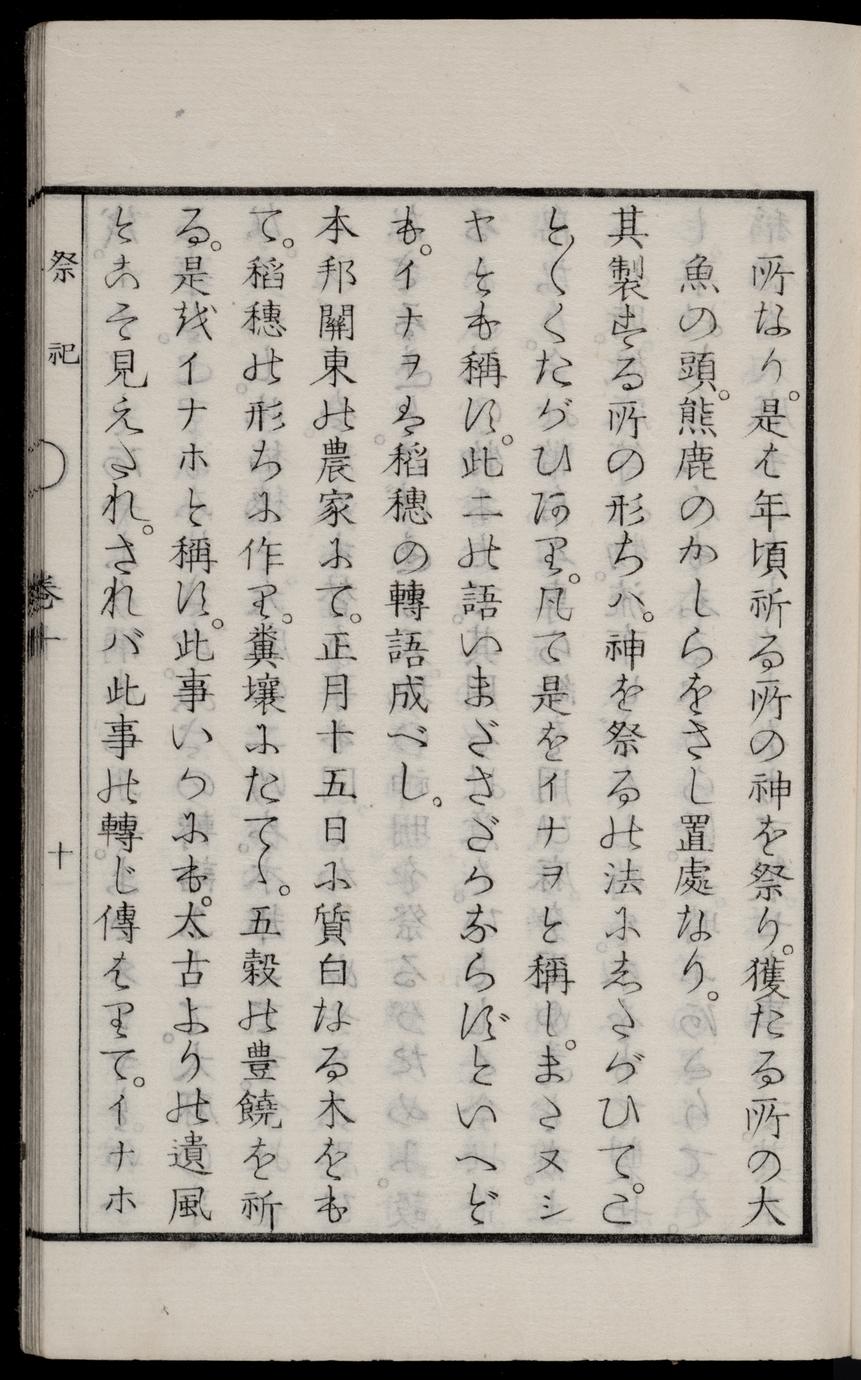 所なり。是は年頃祈る所の神を祭り。獲たる所の大
魚の頭。熊鹿のかしらをさし置處なり。
其製する所の形ちハ。神を祭るの法にしたがひて。こ
と〱くたがひあり。凡て是をイナヲと稱し。またヌシ
ヤとも稱す。此二の語いまださだかならずといへど
も。イナヲは稻穗の轉語成べし。
本邦關東の農家にて。正月十五日に質白なる木をも
て。稻穗の形ちに作り。糞壤にたてゝ。五穀の豊饒を祈
る。是をイナホと稱す。此事いつにも。太古よりの遺風
とこそ見えたれ。されバ此事の轉じ傳はりて。イナホ
祭祀
卷十
十